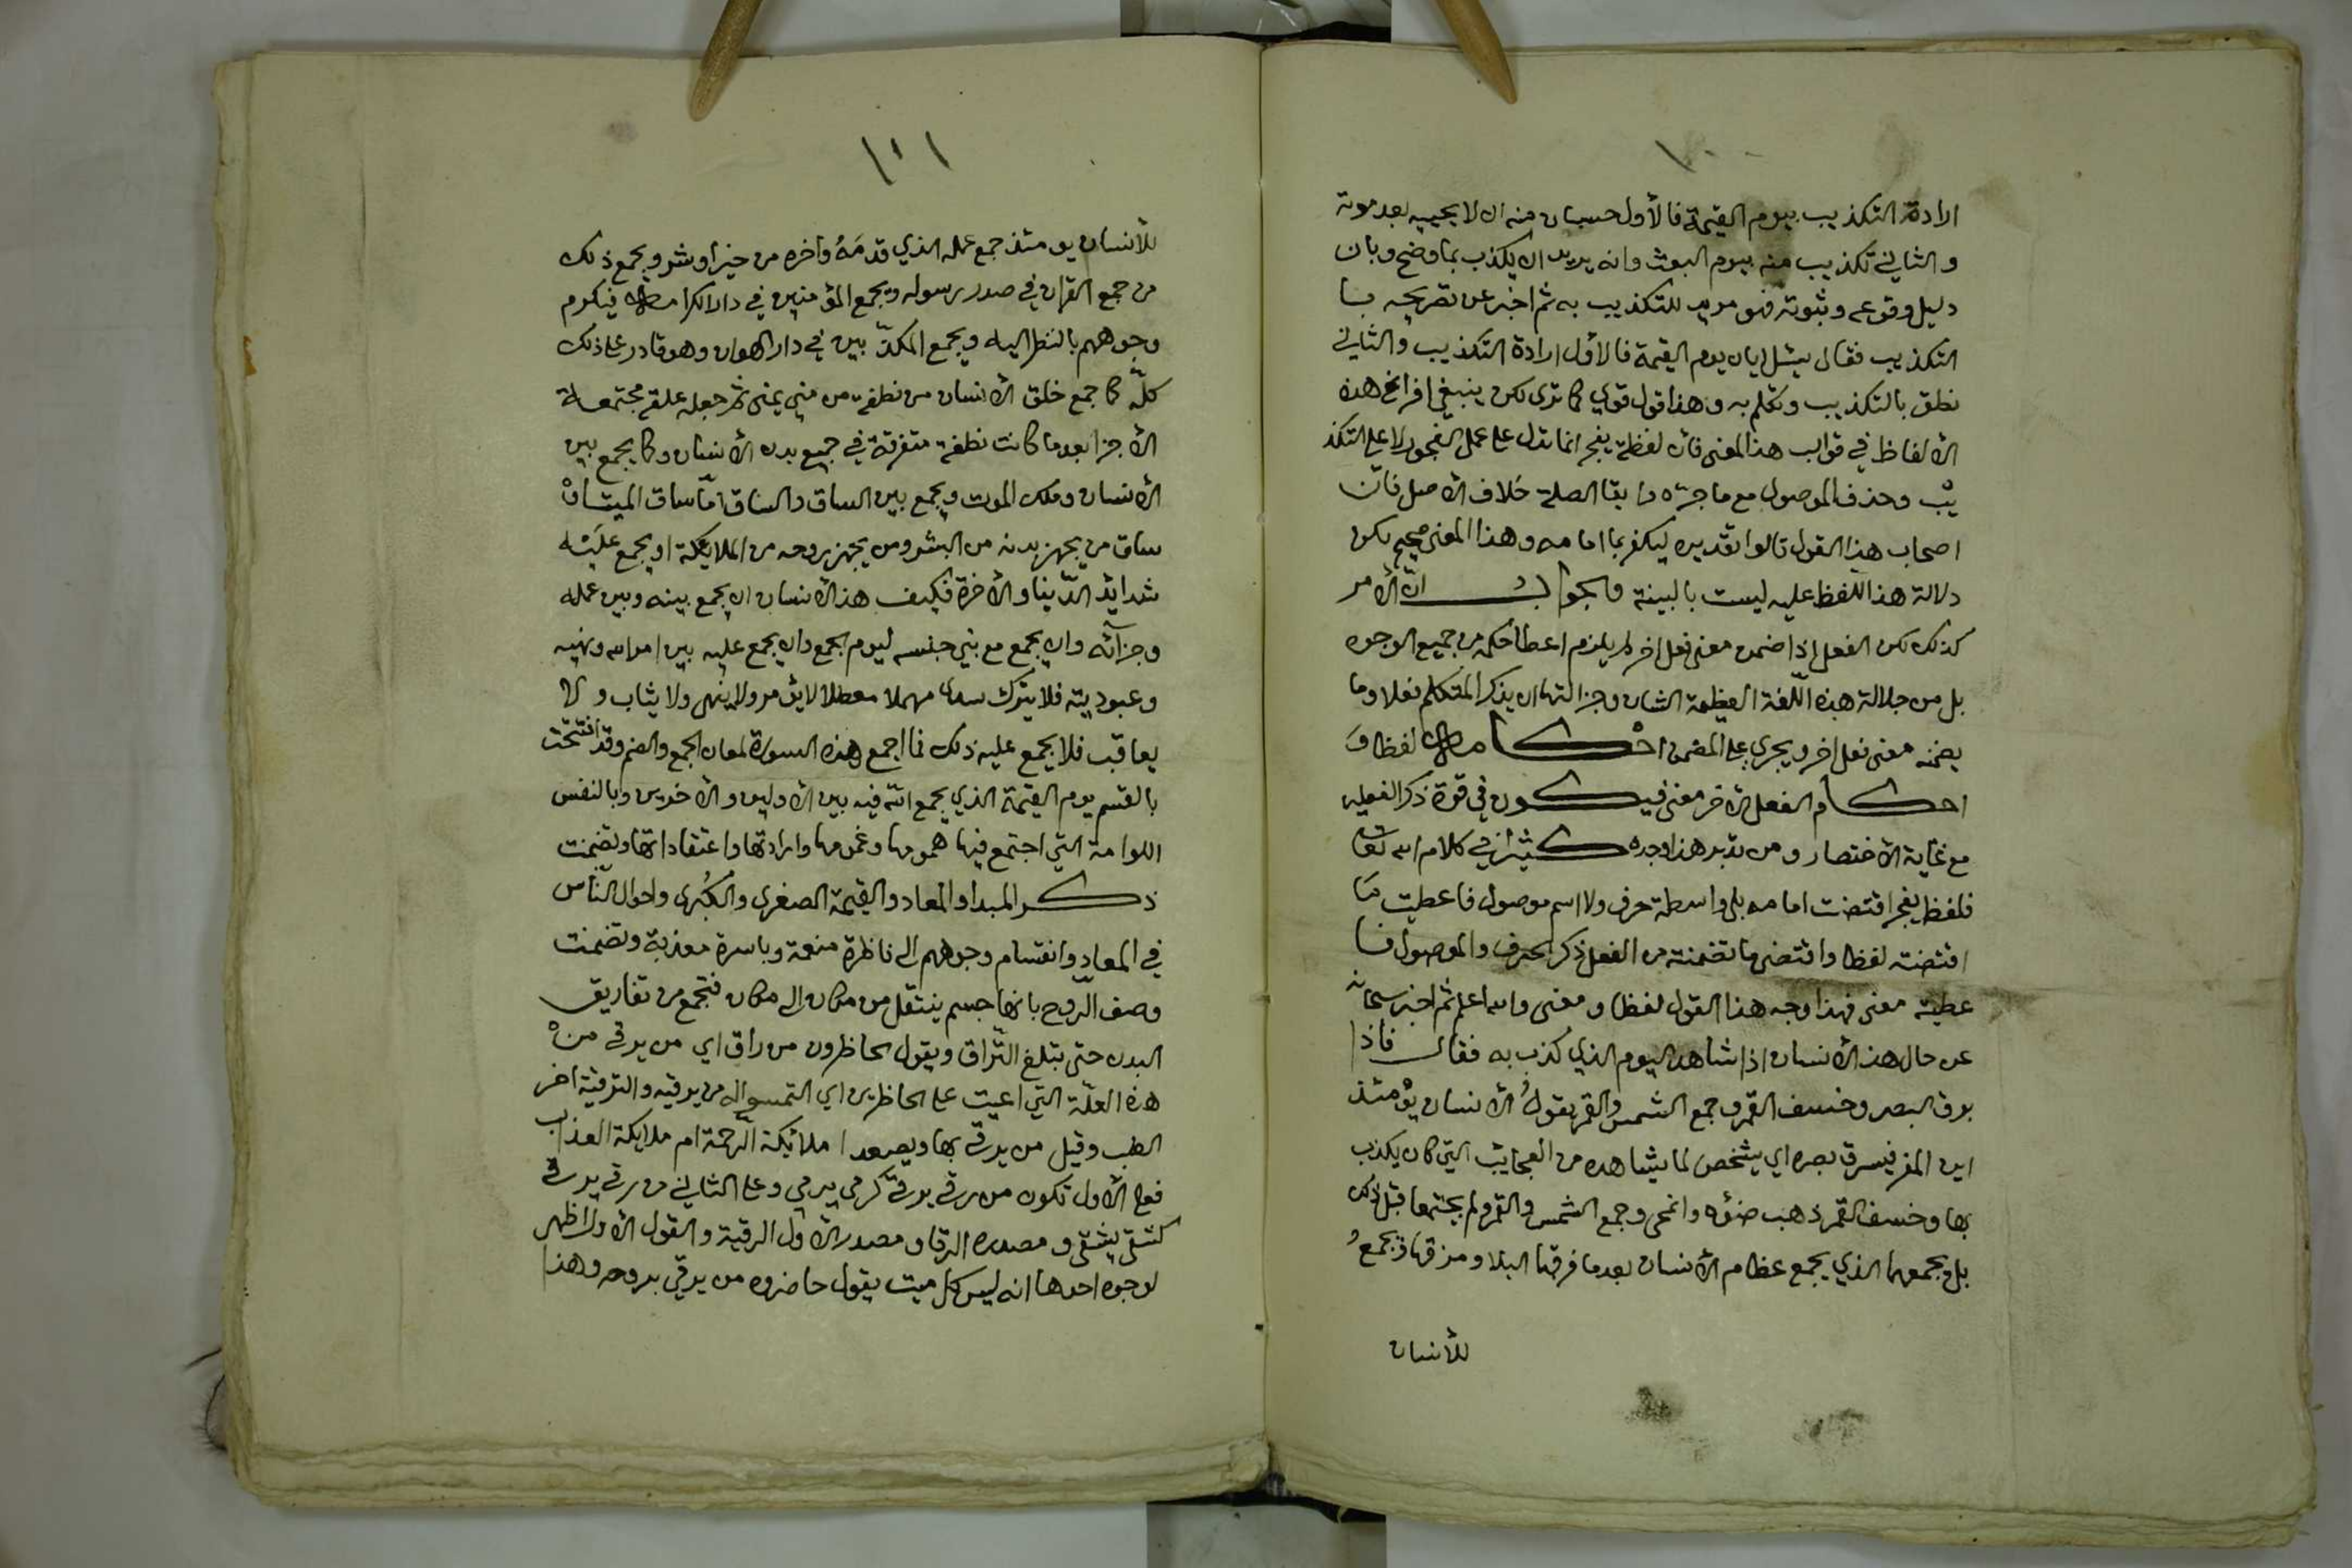 ١٠٠
ارادة التكذيب بيوم القيمة فالأول حسبان منه ان لا يحييه بعد موته
والثاني تكذيب منه بيوم البعث وانه يريد ان يكذب بما وضح وبان
دليل وقوعه وثبوته فهو مريد للتكذيب به ثم اخبر عن تصريحه با
التكذيب فقال يسئل ايان يوم القيمة فالأول ارادة التكذيب والثاني
نطق بالتكذيب وتكلم به وهذا قول قوي كما ترى لكن ينبغي افراغ هذه
الألفاظ في قوالب هذا المعنى فان لفظة يفجر انما تدل على عمل الفجور لا على التكذ
يب وحذف الموصول مع ما جره وابقا الصلة خلاف الأصل فان
اصحاب هذا القول قالوا تقديره ليكفر بما امامه وهذا المعنى صحيح لكن
دلالة هذا اللفظ عليه ليست بالبينة والجواب ان الأمر
كذلك لكن الفعل اذا ضمن معنى فعل اخر لم يلزم اعطا حكمه من جميع الوجوه
بل من جلالة هذه اللغة العظيمة الشان وجزالتها ان يذكر المتكلم فعلا وما
يضمنه معنى فعل اخر ويجري على المضمن احكامه لفظا و
احكام الفعل الأخر معنى فيكون في قوة ذكر الفعلين
مع غاية الأختصار ومن تدبر هذا وجده كثيرا في كلام الله تعا
فلفظ يفجر اقتضت امامه بلى واسطة حرف ولا اسم موصول فاعطيت ما
اقتضته لفظا واقتضى ما تضمنته من الفعل ذكر الحرف والموصول فا
عطيته معنى فهذا وجه هذا القول لفظا ومعنى والله اعلم ثم اخبر سبحانه
عن حال هذا الأنسان اذا شاهد اليوم الذي كذب به فقال فاذا
برق البصر وخسف القمر وجمع الشمس والقمر يقول الأنسان يومئذ
اين المفر فيبرق بصره اي يشخص لما يشاهده من العجايب التي كان يكذب
بها وخسف القمر ذهب ضؤه وانمحى وجمع الشمس والقمر ولم يجتمعا قبل ذلك
بل يجمعهما الذي يجمع عظام الأنسان بعد ما فرقها البلا ومزقها ويجمع
للأنسان
١٠١
للأنسان يومئذ جمع عمله الذي قدمه واخره من خير او شر ويجمع ذلك
من جمع القران في صدر رسوله ويجمع المؤمنين في دار الكرامة فيكرم
وجوههم بالنظر اليه ويجمع المكذبين في دار الهوان وهو قادر على ذلك
كله كما جمع خلق الأنسان من نطفة من مني يمنى ثم جعله علقة مجتمعة
الأجزا بعد ما كانت نطفة متفرقة في جميع بدن الأنسان وكما يجمع بين
الأنسان وملك الموت ويجمع بين الساق والساق اما ساق الميت او
ساق من يجهز بدنه من البشر ومن يجهز روحه من الملايكة او يجمع عليه
شدايد الدنيا والأخرة فكيف هذا الأنسان ان يجمع بينه وبين عمله
وجزآئه وان يجمع مع بني جنسه ليوم الجمع وان يجمع عليه بين امر الله ونهيه
وعبوديته فلا يترك سدى مهملا معطلا لا يؤمر ولا ينهى ولا يثاب ولا
يعاقب فلا يجمع عليه ذلك فما اجمع هذه السورة لمعان الجمع والضم وقد افتتحت
بالقسم بيوم القيمة الذي يجمع الله فيه بين الأولين والأخرين وبالنفس
اللوامة التي اجتمع فيها همومها وغمومها وارادتها واعتقاداتها وتضمنت
ذكر المبدا والمعاد والقيمة الصغرى والكبرى واحوال الناس
في المعاد وانقسام وجوههم الى ناظرة منعمة وباسرة معذبة وتضمنت
وصف الروح بانها جسم ينتقل من مكان الى مكان فتجمع من تفاريق
البدن حتى يتبلغ التراق ويقول الحاظرون من راق اي من يرقي من
هذه العلة التي اعيت على الحاظرين اي التمسوا له من يرقيه والترقية اخر
الطب وقيل من يرقى بها ويصعد املائكة الرحمة ام ملايكة العذاب
فعلى الأول تكون من رقى يرقى كرمى يرمي وعلى الثاني من رقي يرقى
كشقى يشقى ومصدره الرقا ومصدر الأول الرقية والقول الأول اظهر
لوجوه احدها انه ليس كل ميت يقول حاضروه من يرقي بروحه وهذا